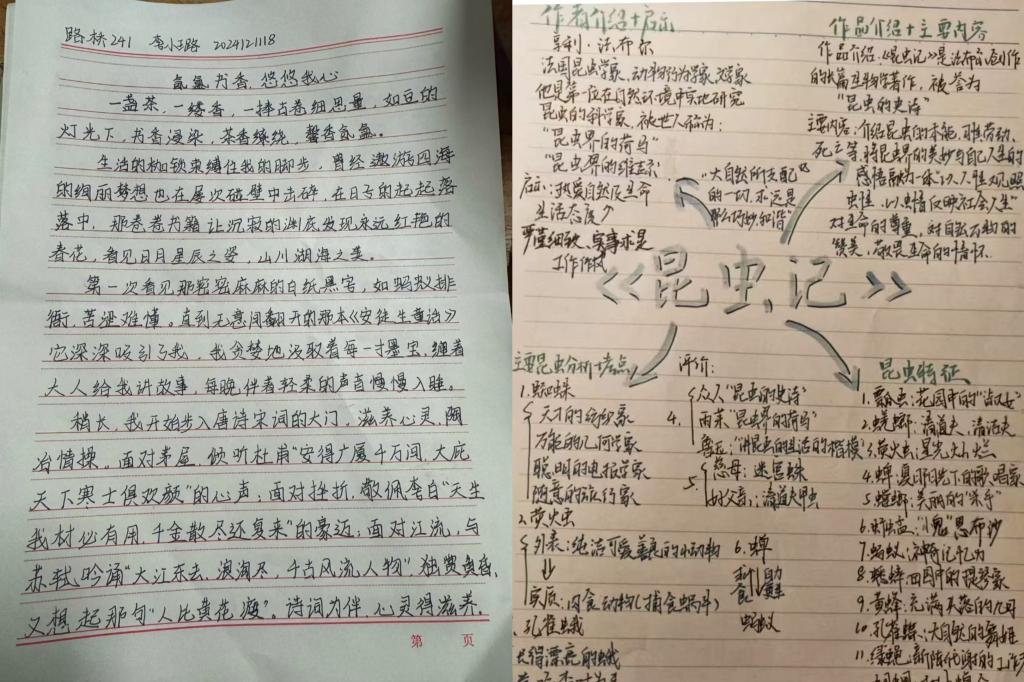 路桥241 李小璐 2024121118
氤氲书香,悠悠我心
一盏茶,一缕香,一捧古卷细思量,如豆的
灯光下,书香浸染,茶香缭绕,馨香氤氲。
生活的枷锁束缚住我的脚步,曾经遨游四海
的绚丽梦想也在屡次碰壁中击碎,在日子的起起落
落中,那卷卷书籍让沉寂的渊底发现永远红艳的
春花,看见日月星辰之姿,山川湖海之美。
第一次看见那密密麻麻的白纸黑字,如蚂蚁排
衙,苦涩难懂。直到无意间翻开的那本《安徒生童话》
它深深吸引了我,我贪婪地汲取着每一寸墨宝,缠着
大人给我讲故事,每晚伴着轻柔的声音慢慢入睡。
稍长,我开始步入唐诗宋词的大门,滋养心灵,陶
冶情操。面对茅屋,倾听杜甫“安得广厦千万间,大庇
天下寒士俱欢颜”的心声;面对挫折,敬佩李白“天生
我材必有用,千金散尽还复来”的豪迈;面对江流,与
苏轼吟诵“大江东去,浪淘尽,千古风流人物”,独赏黄昏,
又想起那句“人比黄花瘦”。诗词为伴,心灵得滋养。
第 页
作者介绍+启示
亨利·法布尔
法国昆虫学家、动物行为学家、文学家
他是第一位在自然环境中实地研究
昆虫的科学家,被世人称为:
“昆虫界的荷马”
“昆虫界的维吉尔”
启示:热爱自然及生命
生活态度↗
严谨细致、实事求是
工作作风
“大自然的支配
的一切,永远是
那么巧妙和谐”
作品介绍+主要内容
作品介绍:《昆虫记》是法布尔创作
的长篇生物学著作,被誉为
“昆虫的史诗”
主要内容:介绍昆虫的本能、习性、劳动、
死亡等,将昆虫界的美妙与自己人生的
感悟融为一体,以人性观照
虫性,以虫情反映社会人生
对生命的尊重,对自然万物的
赞美,敬畏生命的情怀.
《昆虫记》
主要昆虫分析+考点
1.蜘蛛
天才的纺织家
万能的几何学家
聪明的电报学家
随意的旅行家
2.萤火虫
外表:纯洁可爱善良的小动物
↓
实质:肉食动物(捕食蜗牛)
孔雀蛾
长得漂亮的蛾
评价:
4.
众人“昆虫的史诗”
雨果“昆虫界的荷马”
鲁迅:“讲昆虫的生活的楷模”
5.
慈母:迷宫蛛
好父亲:清道夫甲虫
6.蝉
蚂蚁
昆虫特征
1.瓢虫:花园中的“淑女”
2.蜣螂:清道夫,清洁夫
3.萤火虫:星光灿烂
4.蝉:夏阳光下的歌唱家
5.螳螂:美丽的“杀手”
7.蚂蚁:神奇记忆力
8.蟋蟀:田园中的提琴家
9.黄蜂:充满
10.孔雀蝶:大自然的舞姬
11.绿蝇:新陈代谢的工作